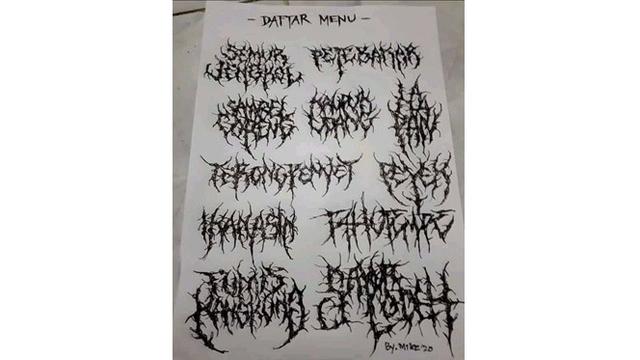 - DAFTAR MENU -
SEMUR
JENGKOL
PETE BAKAR
SAMBEL
GORENG
UDANG
LA
LA
PAN
TERONG PENYET
PEYEK
IKAN ASIN
TAHU TEMPE
TUMIS
KANGKUNG
SAYUR
LODEH
By. MIKE '20